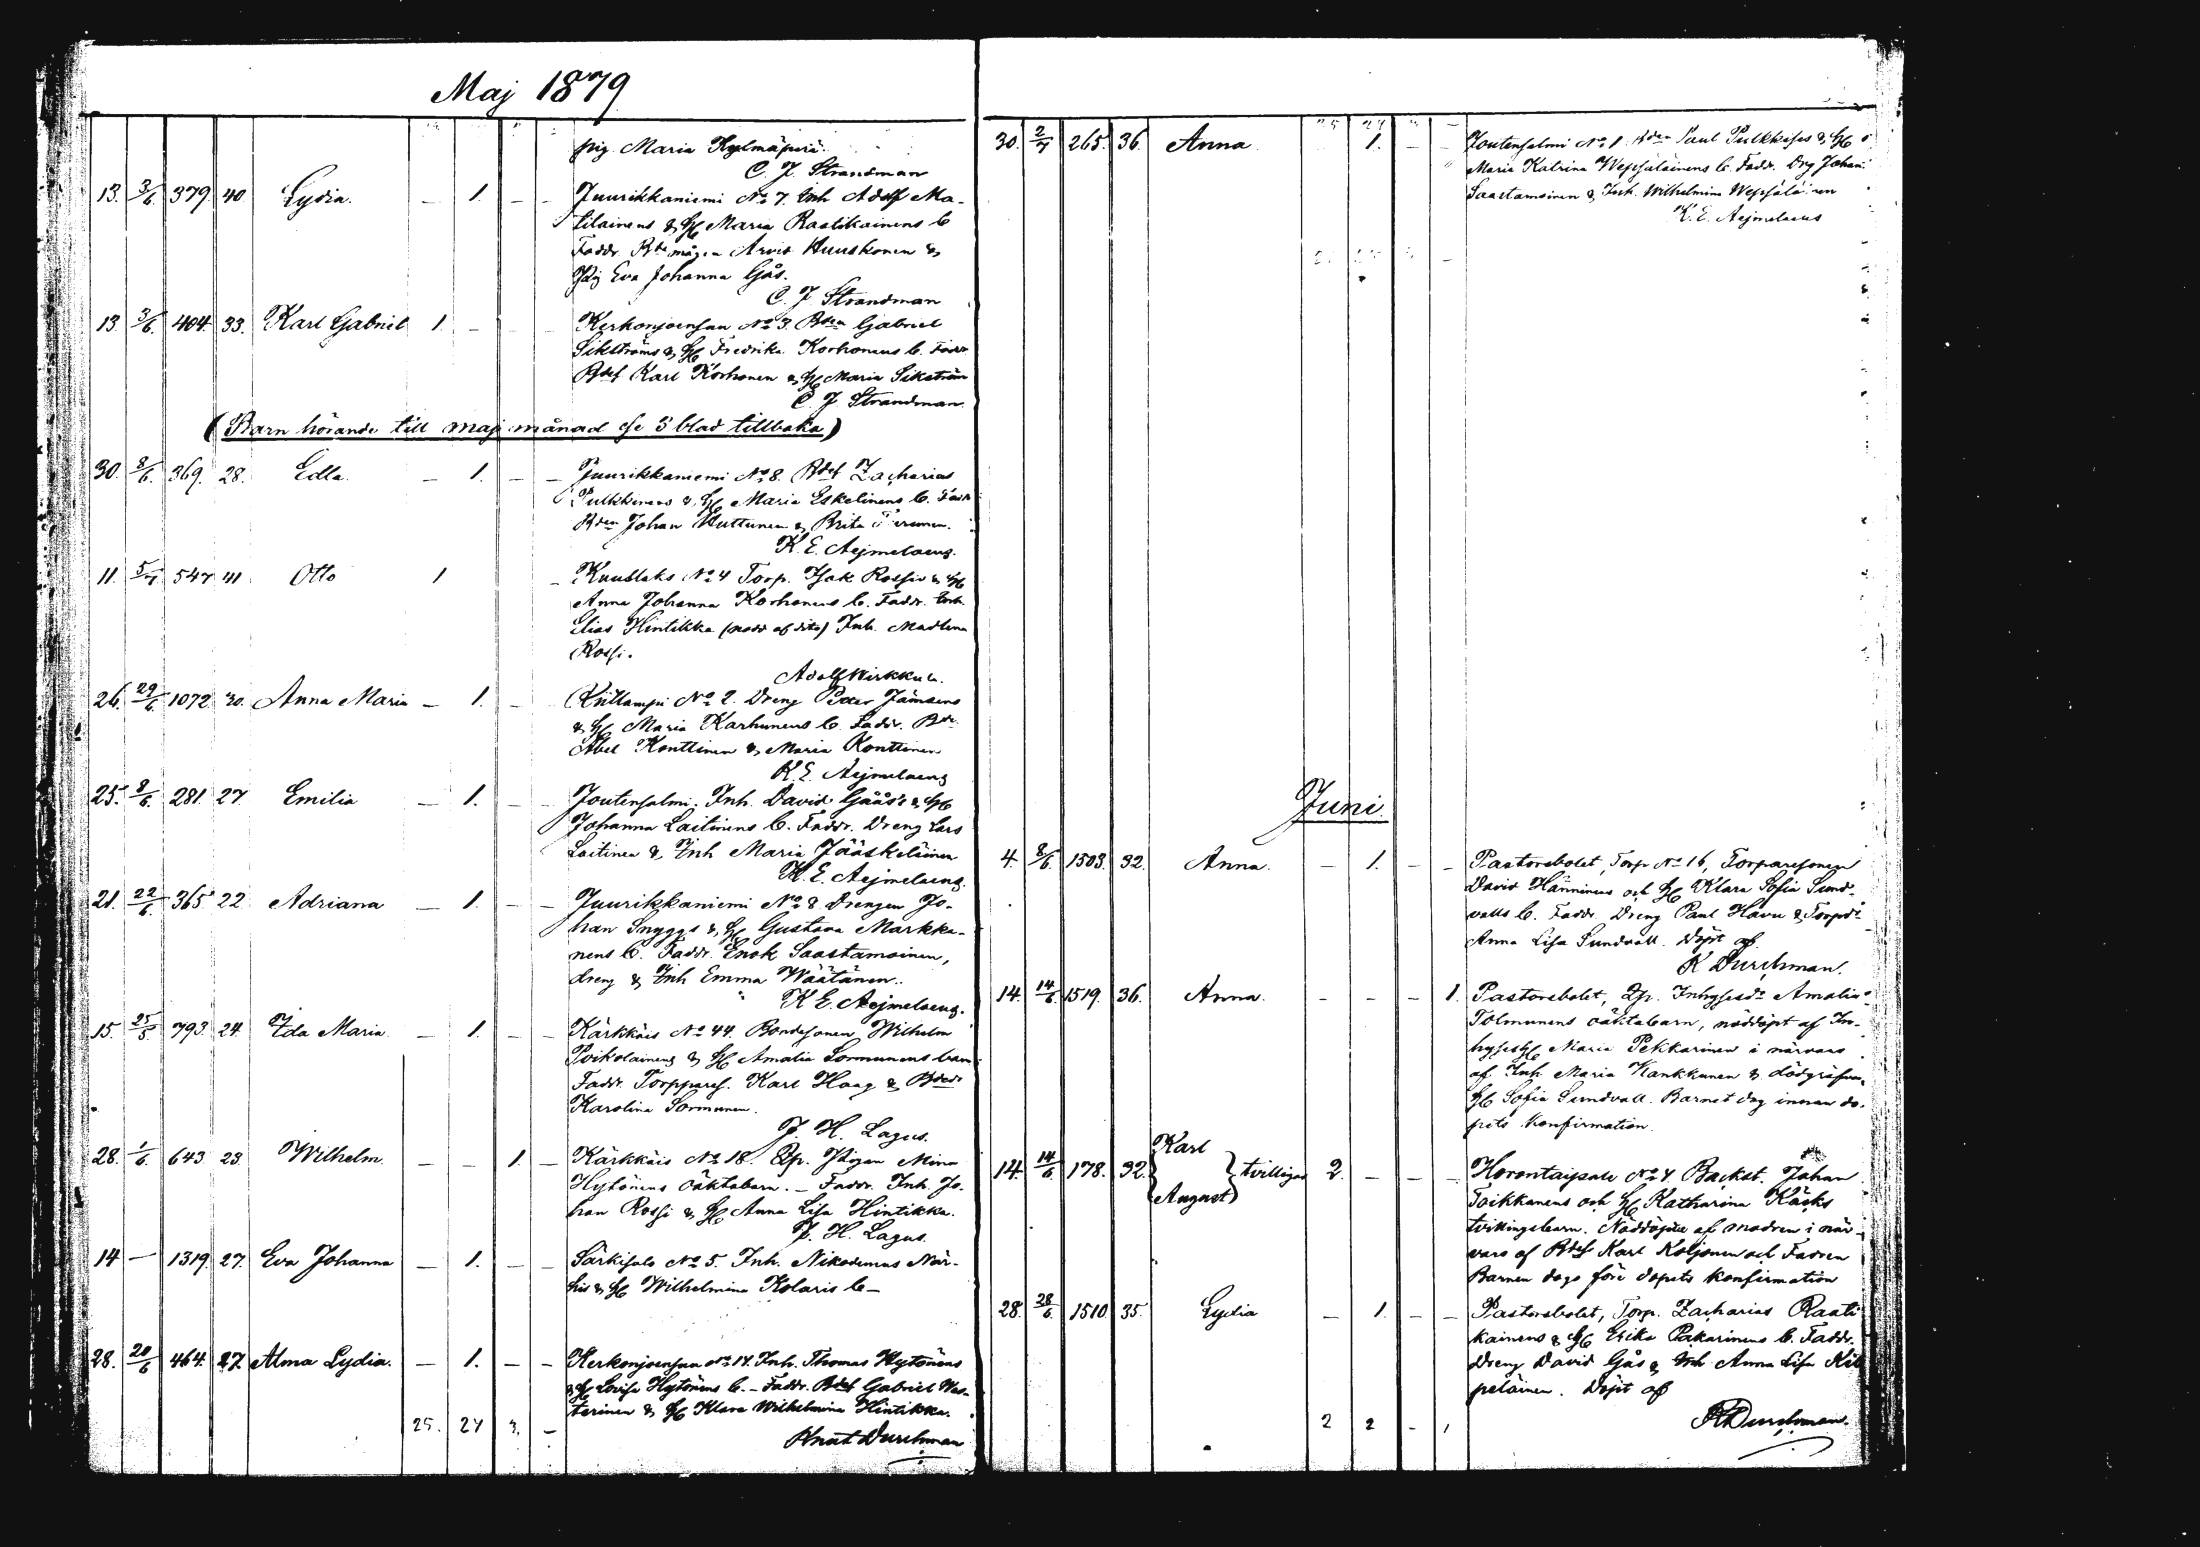 Maj 1879
pig. Maria Kylmäpurä.
C. J. Strandman
13. 3/6. 379. 40. Lydia. — 1. — — Juurikkaniemi No 7. Inh Adolf Ma-
tilainens & H Maria Raatikainens b
Faddr. Arvid Huuskonen &
Pig Eva Johanna Gås.
C. J. Strandman
13. 3/6. 404. 33. Karl Gabriel 1 — Kerkonjoensuu No 3. Bden Gabriel
Sikströms & H Fredrika Korhonens b. Faddr
Bdes Karl Korhonen & H Maria Sikström
C. J. Strandman.
(Barn hörande till maj månad se 5 blad tillbaka)
30. 8/6. 369. 28. Edla. — 1. — — Juurikkaniemi No 8. Bdes Zacharias
Pulkkinens & H Maria Eskelinens b. Faddr
Bden Johan Huttunen & Brita
K. E. Aejmelaeus.
11. 5/7 547 41 Otto 1 — Kuuslaks No 4 Torp. Isak Rossis & H
Anna Johanna Korhonens b. Faddr. Inh.
Elias Hintikka Inh. Madlena
Rossi.
Adolf Wirkkula.
26. 29/6. 1072 30. Anna Maria — 1. — No 2. Dreng Petter Jämsens
& H Maria Karhunens b. Faddr. Bde
Abel Konttinen & Maria Konttinen
K. E. Aejmelaeus
25. 8/6. 281. 27 Emilia — 1. — — Joutensalmi. Inh. David Gåås's & H
Johanna Laitinens b. Faddr. Dreng Lars
Laitinen & Inh Maria Jääskeläinen
K. E. Aejmelaeus.
21. 22/6. 365 22 Adriana — 1. — — Juurikkaniemi No 8 Drengen Jo-
han Snyggs & H Gustava Markka-
nens b. Faddr. Enok Saastamoinen,
dreng & Inh Emma Wäätänen.
K. E. Aejmelaeus.
15. 25/5. 793. 24. Ida Maria. — 1. — — Kärkkäis No 44. Bondesonen Wilhelm
Poikolainens & H Amalia Sormunens barn
Faddr. Torppares. Karl Haag & Bdedr
Karolina Sormunen.
J. H. Lagus.
28. 1/6. 643 23. Wilhelm. — — 1. — Kärkkäis No 18. Qp. Pigan Mina
Hytönens oäktabarn. — Faddr. Inh. Jo-
han Rossi & H Anna Lisa Hintikka.
J. H. Lagus.
14 — 1319. 27. Eva Johanna — 1. — — Särkisalo No 5. Inh. Nikodemus När-
his & H Wilhelmina Kolaris b —
28. 20/6 464. 27. Alma Lydia. — 1. — — Kerkonjoensuu No 14. Inh. Thomas Hytönens
& H Lovisa Hytönens b. — Faddr. Bdes Gabriel Wes-
terinen & H Klara Wilhelmina Hintikka.
25. 24 3. —
Knut Durchman
30. 2/7 265. 36. Anna 1. — — Joutensalmi No 1 Bden Paul Pulkkises & H
Maria Katrina Wepsäläinens b. Faddr. Drg Johan
Saastamoinen & Inh. Wilhelmina Wepsäläinen
K. E. Aejmelaeus
Juni.
4. 8/6. 1503. 32. Anna. — 1. — — Pastorsbolet, Torp No 16, Torparesonen
David Hänninens och H Klara Sofia Sund-
valls b. Faddr. Dreng Paul Havu & Torpdr
Anna Lisa Sundvall. Döpt af
K Durchman.
14. 14/6 1519. 36. Anna. — — — 1. Pastorsbolet, Qp. Inhysesdr Amalia
Tolmunens oäktabarn, nöddöpt af In-
hysesH Maria Pekkarinen i närvaro
af Inh. Maria Kankkunen & dödgräfven
H Sofia Sundvall. Barnet dog innan do-
pets konfirmation.
14. 14/6. 178. 32. { Karl August } tvillingar 2. — — — Horontaipale No 4. Backst. Johan
Toikkanens och H Katharina Käcks
tvillingsbarn. Nöddöpta af modren i när-
varo af Bdes Karl Koljonen och Fadren
Barnen dogo före dopets konfirmation
28. 28/6. 1510. 35. Lydia — 1. — — Pastorsbolet, Torp. Zacharias Raati
kainens & H Erika Pakarinens b. Faddr.
Dreng David Gås & Inh Anna Lisa Kil
peläinen. Döpt af
2 2 — 1
K Durchman.